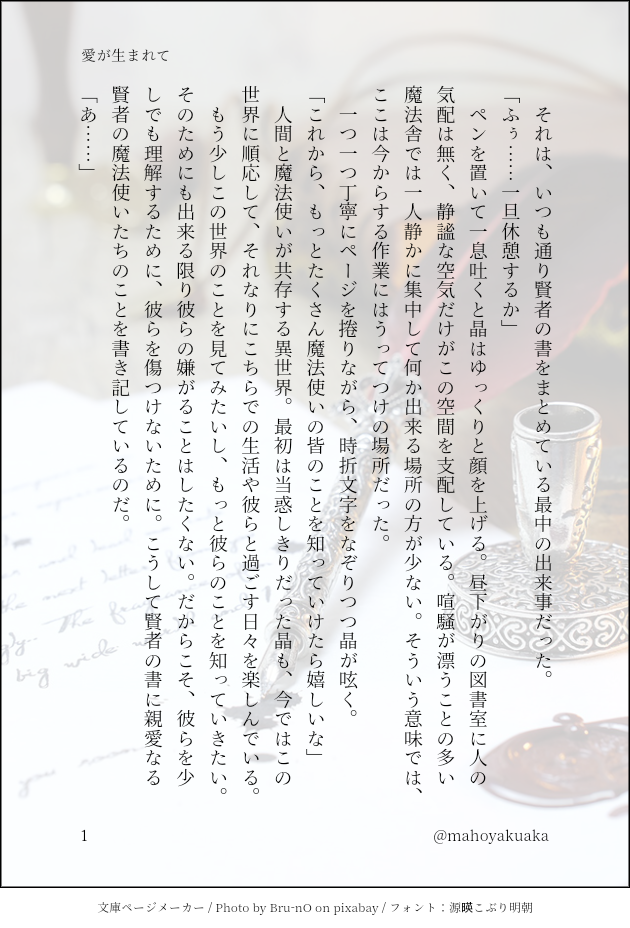 愛が生まれて
　それは、いつも通り賢者の書をまとめている最中の出来事だった。
「ふぅ……一旦休憩するか」
　ペンを置いて一息吐くと晶はゆっくりと顔を上げる。昼下がりの図書室に人の
気配は無く、静謐な空気だけがこの空間を支配している。喧騒が漂うことの多い
魔法舎では一人静かに集中して何か出来る場所の方が少ない。そういう意味では、
ここは今からする作業にはうってつけの場所だった。
　一つ一つ丁寧にページを捲りながら、時折文字をなぞりつつ晶が呟く。
「これから、もっとたくさん魔法使いの皆のことを知っていけたら嬉しいな」
　人間と魔法使いが共存する異世界。最初は当惑しきりだった晶も、今ではこの
世界に順応して、それなりにこちらでの生活や彼らと過ごす日々を楽しんでいる。
　もう少しこの世界のことを見てみたいし、もっと彼らのことを知っていきたい。
そのためにも出来る限り彼らの嫌がることはしたくない。だからこそ、彼らを少
しでも理解するために、彼らを傷つけないために。こうして賢者の書に親愛なる
賢者の魔法使いたちのことを書き記しているのだ。
「あ……」
1
@mahoyakuaka
文庫ページメーカー / Photo by Bru-nO on pixabay / フォント：源暎こぶり明朝